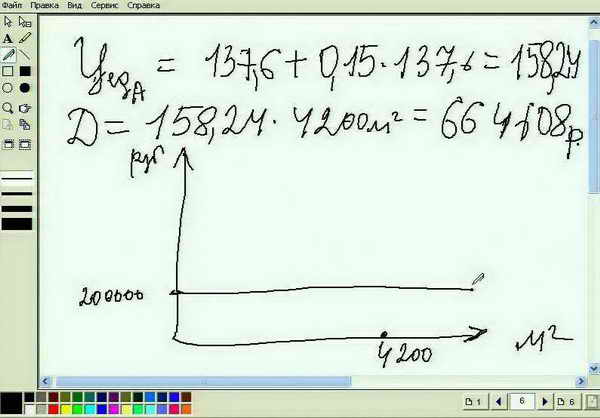 Файл Правка Вид Сервис Справка
Цед А = 137,6 + 0,15 · 137,6 = 158,24
Д = 158,24 · 4200м² = 664608р.
руб
200000
4200
м²
1 6 6